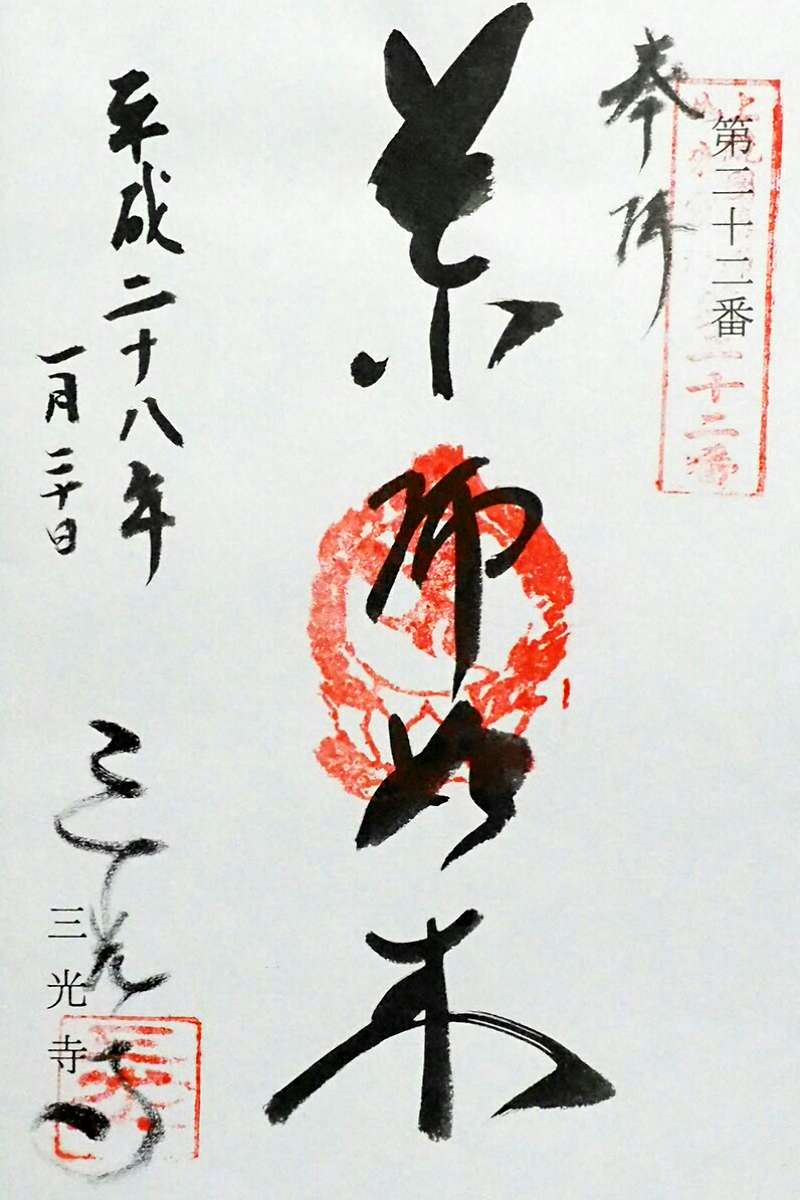 奉拝
第二十二番
薬師如来
平成二十八年
一月二十日
三光寺
三光寺